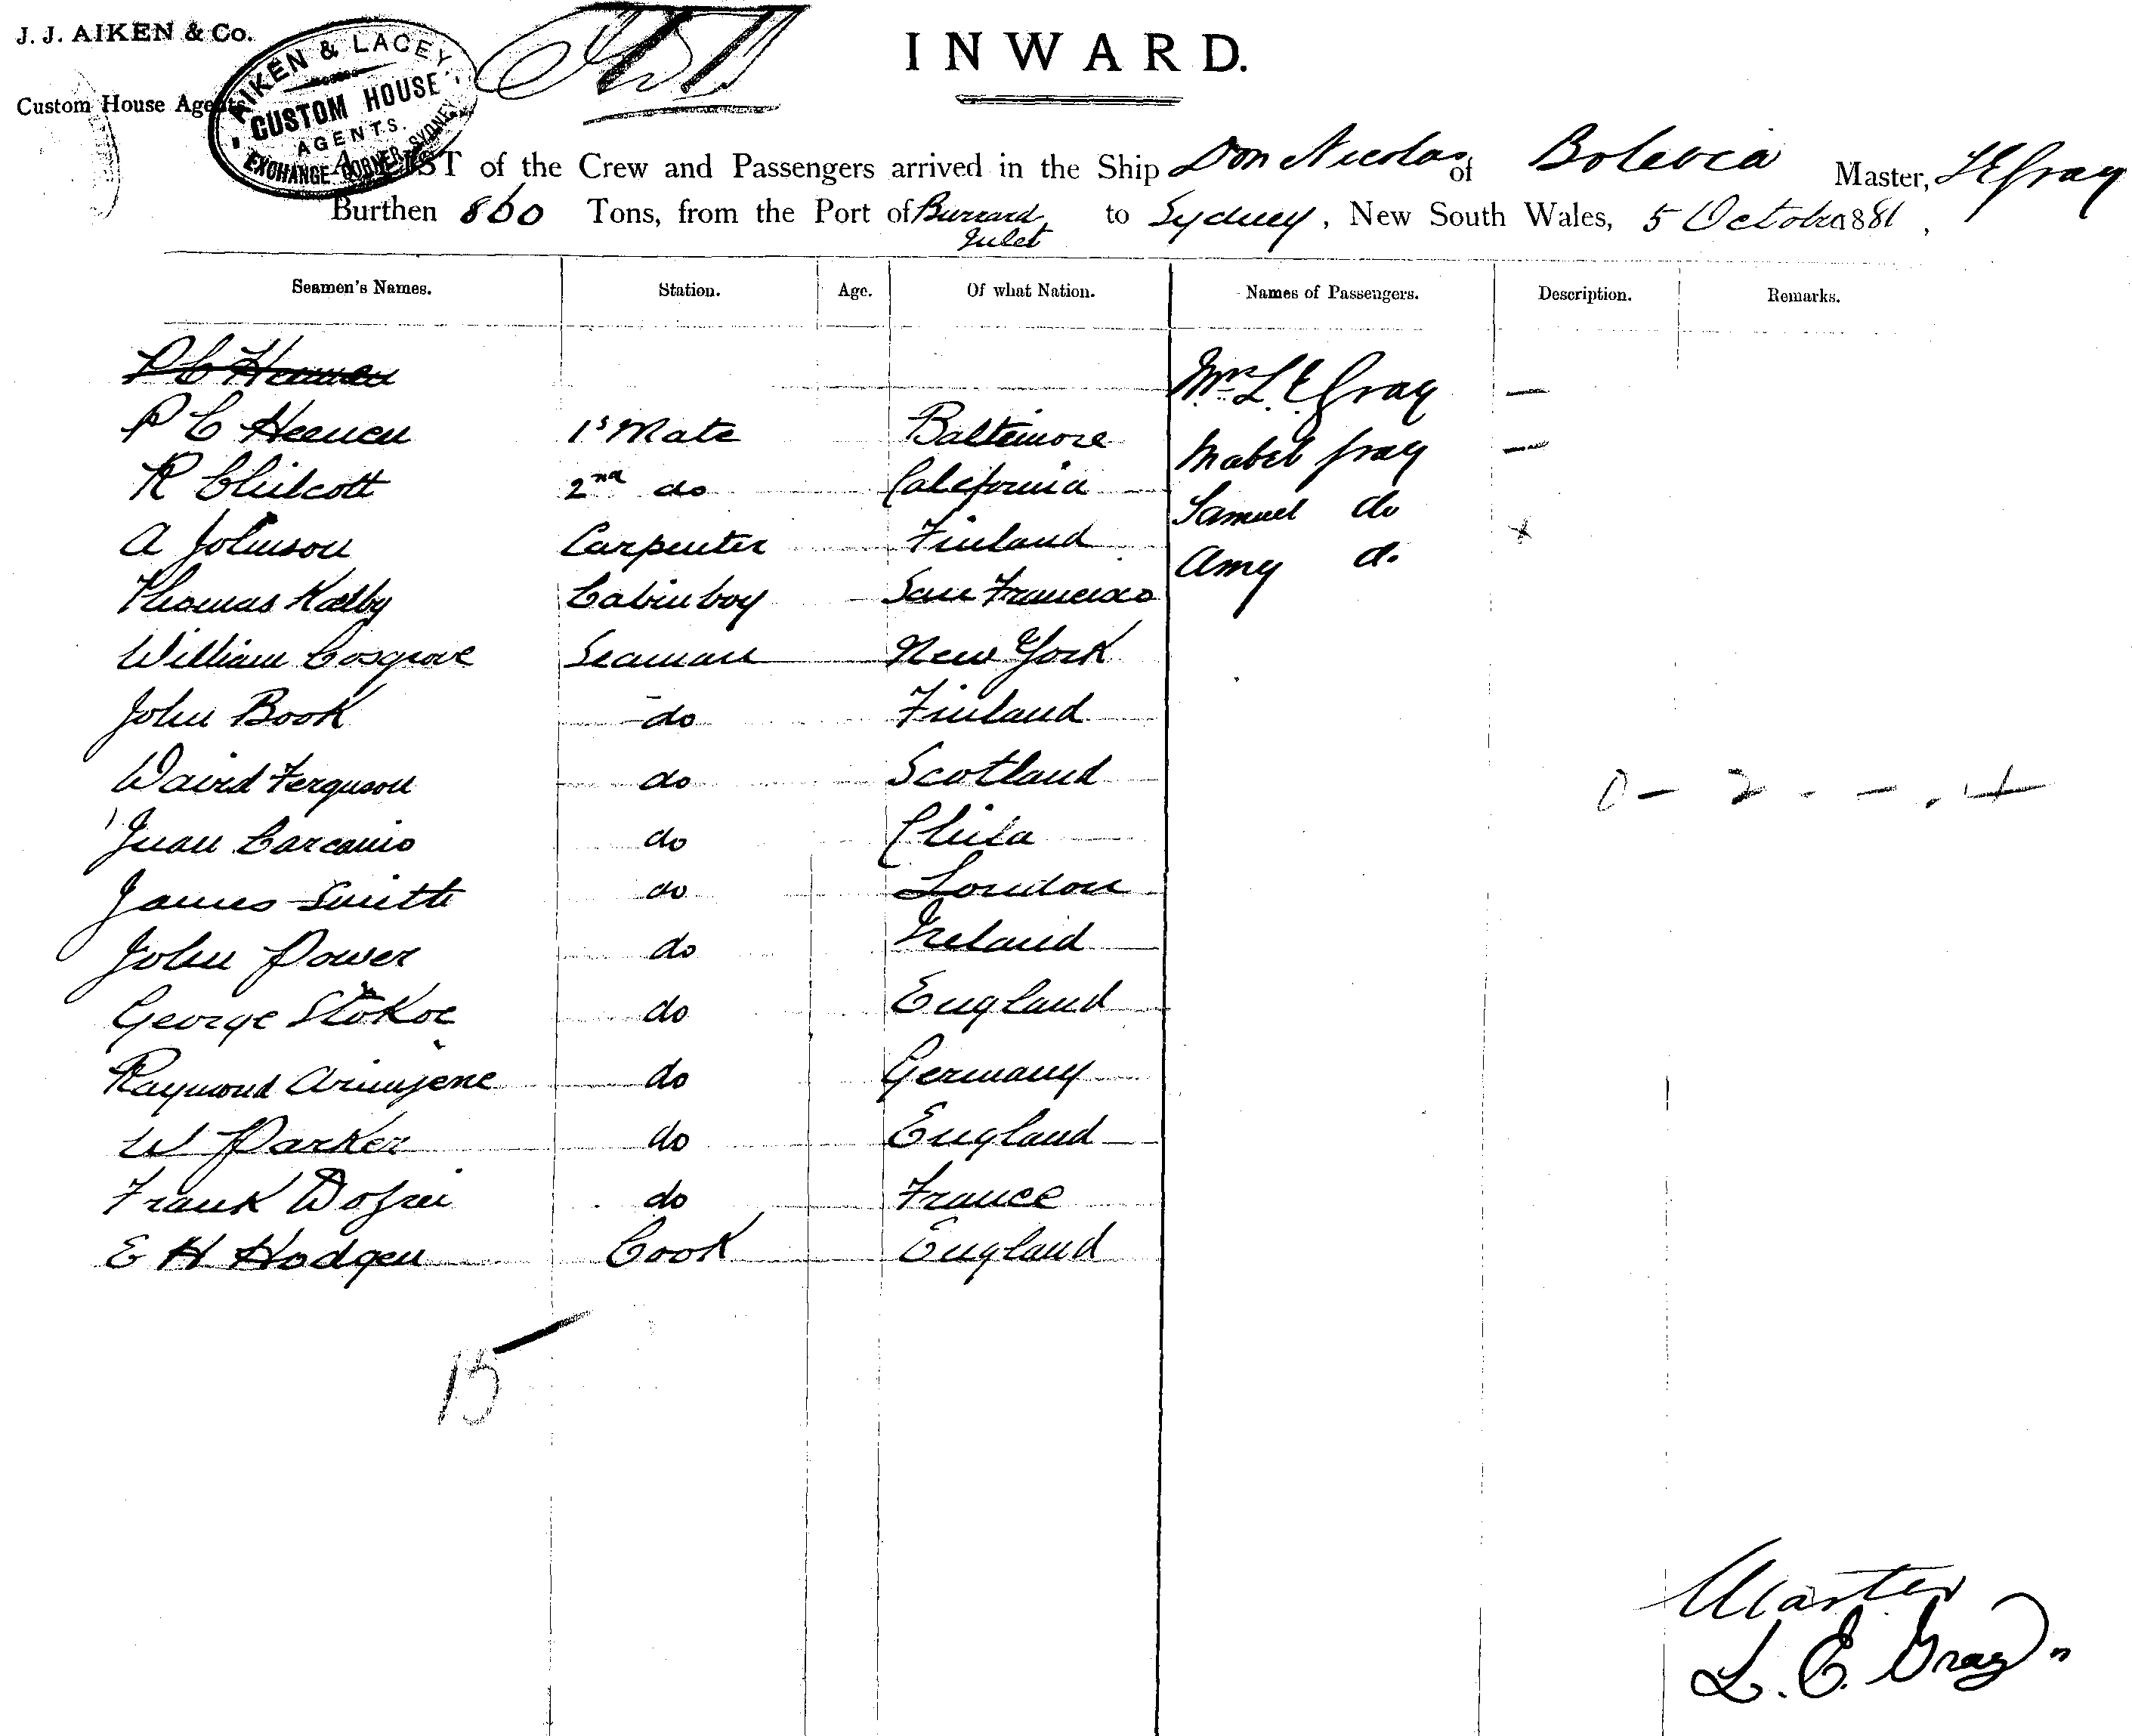 J. J. AIKEN & Co.
Custom House Agents
AIKEN & LACEY
CUSTOM HOUSE
AGENTS.
EXCHANGE CORNER SYDNEY
INWARD.
A LIST of the Crew and Passengers arrived in the Ship Don Nicolas of Bolevia Master, L E Gray
Burthen 860 Tons, from the Port of Burrard Inlet to Sydney, New South Wales, 5 October 1881,
Seamen's Names. Station. Age. Of what Nation. Names of Passengers. Description. Remarks.
P C Heenen Mrs L. E Gray —
P C Heenen 1s Mate Baltimore Mabel Gray —
R Chilcott 2nd do California Samuel do
A Johnson Carpenter Finland Amy do
Thomas Kalby Cabin boy San Francisco
William Cosgrove Seaman New York
John Book do Finland
David Ferguson do Scotland
Juan Carcanio do Chila
James Smith do London
John Power do Ireland
George Stokoe do England
Raymond do Germany
W Parker do England
Frank do France
E H Hodgen Cook England
15
Master
L. E. Gray